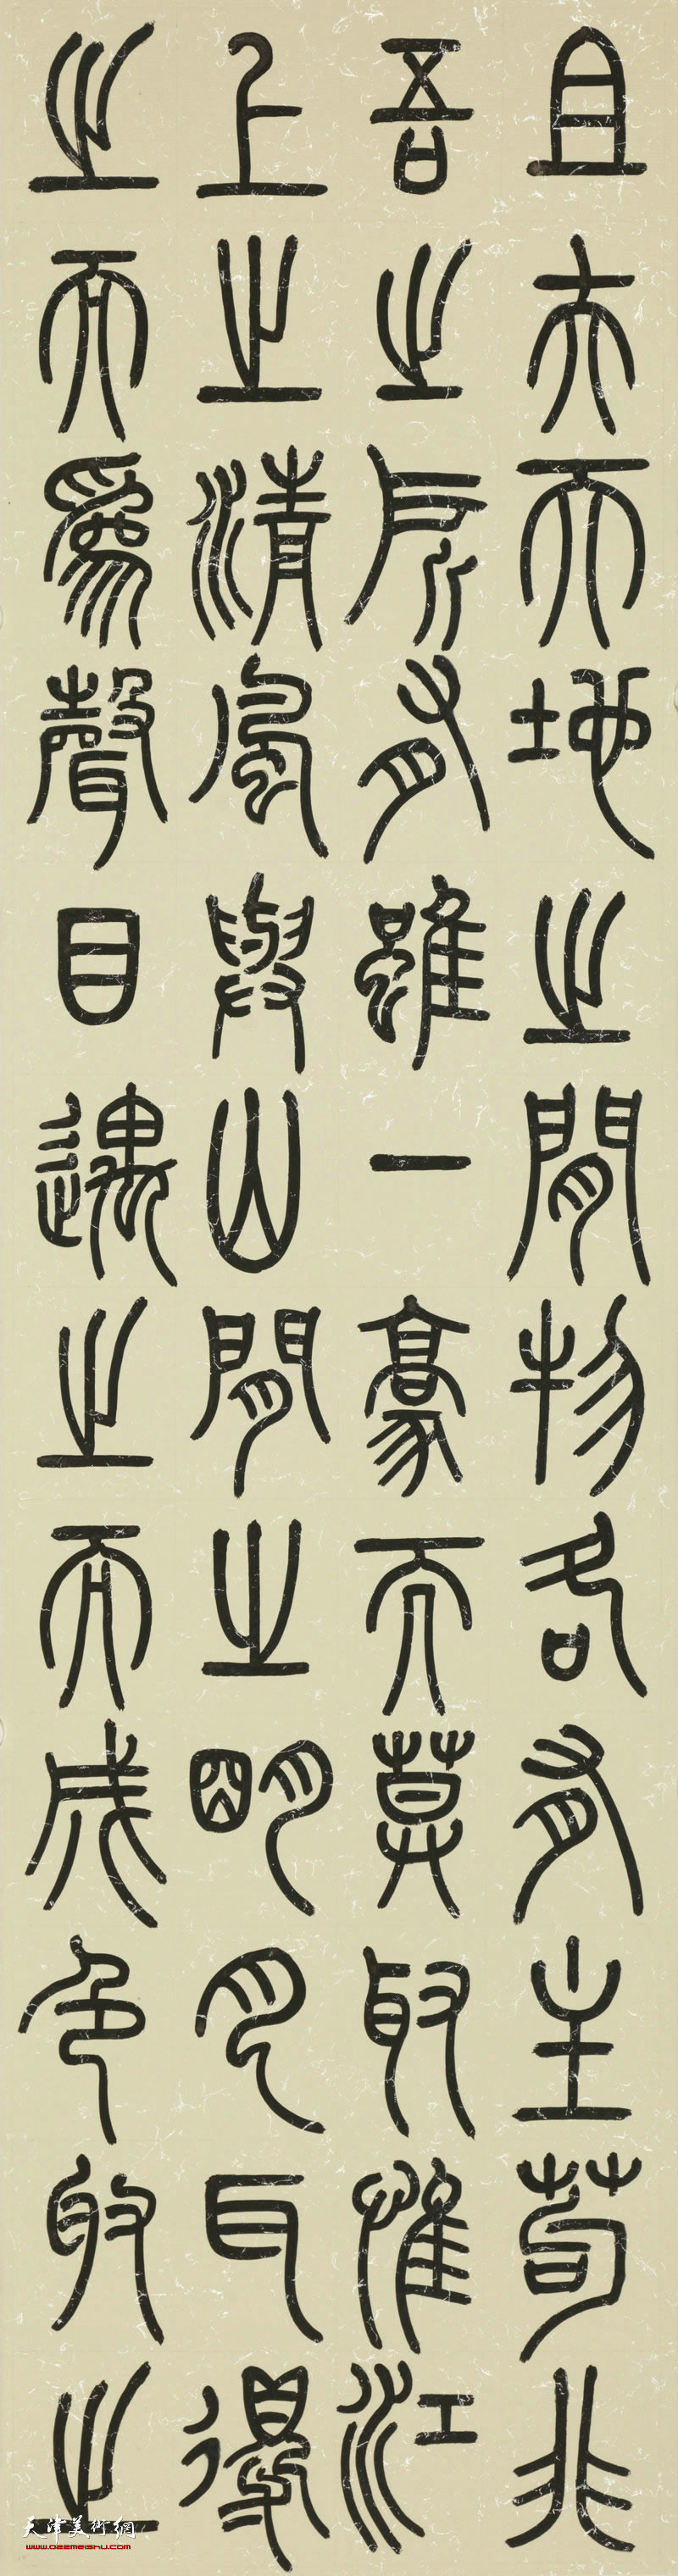 且夫天地之間物各有主苟非
吾之所有雖一豪而莫取惟江
上之清風與山間之明月耳得
之而為聲目遇之而成色取之
天津美術網
www.022meishu.com